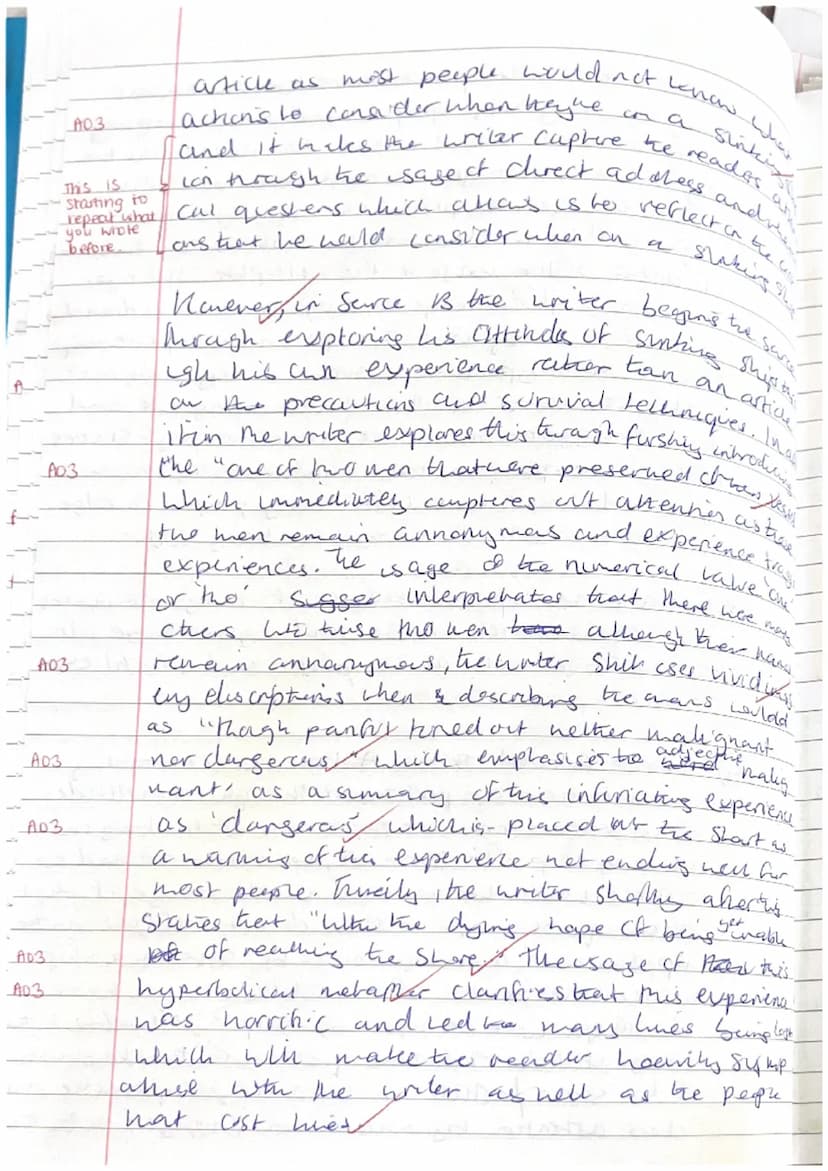 article as most people would not know what
AO3
actions to consider when they're on a sinking
and it makes the writer capture the reader
through the usage of direct address and
This is starting to repeat what you wrote before.
cal questions which allows us to reflect on the
ons that he would consider when on a sinking ship
However, in Source B the writer begins the source
through exploring his attitudes of sinking ships
ugh his own experience rather than an article
on the precautions and survival techniques. In
the writer explores this through introducing
AO3
the "one of two men that were preserved
which immediately captures our attention as
the men remain annonymas and experience
experiences. The usage of the numerical value 'one
or two' sugges interpretates that there were many
others with these two men although their names
AO3
remain annonymous, the writer uses vivid
ery descriptions when describing the mans
as "though painful turned out neither malignant
AO3
nor dangerous" which emphasises the adjective 'malig
nant' as a summary of this infuriating experience
AO3
as 'dangerous' which is placed at the start as
a warning of this experience not ending well for
most people. the writer shortly after this
states that "with the dying hope of being yet unable
AO3
of reaching the shore." The usage of this
AO3
hyperbolical metaphor clarifies that this experience
was horrific and led many lives being lost
which will make the reader heavily symp
athise with the writer as well as the people
that cost lives